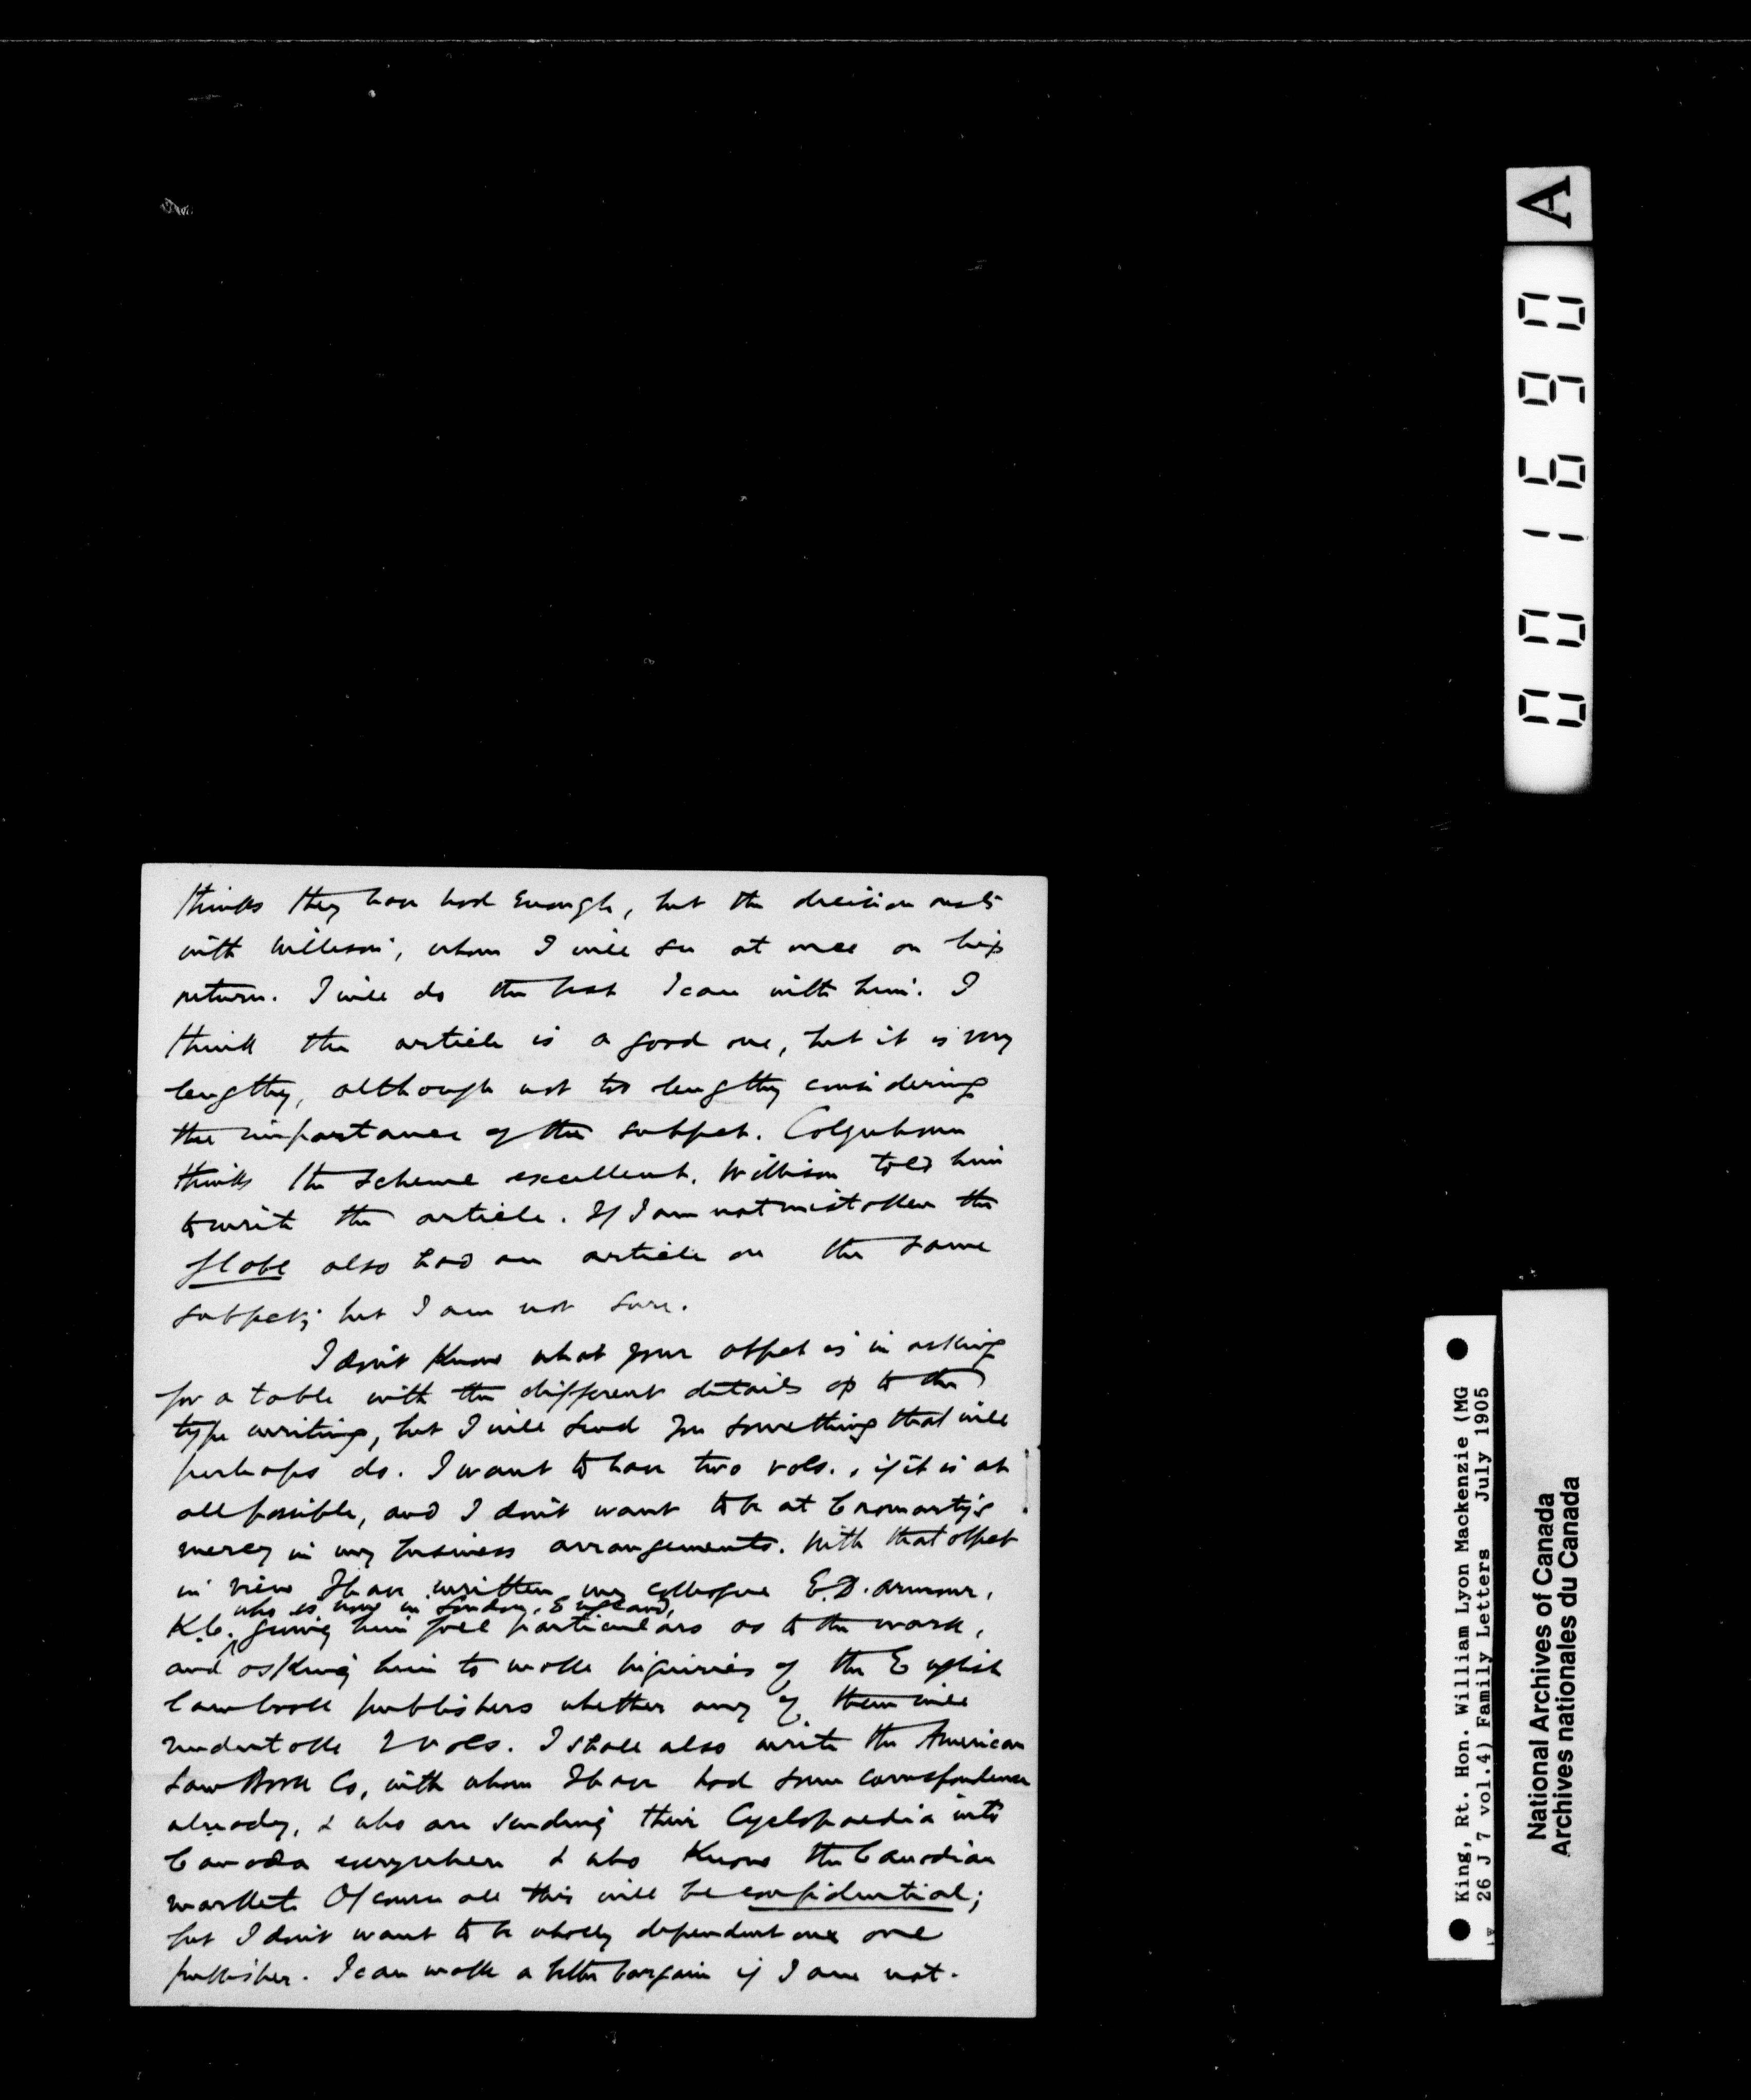 thinks they have had enough, but the decision rests
with Willison, whom I will see at once on his
return. I will do the best I can with him. I
think the article is a good one, but it is very
lengthy, although not too lengthy considering
the importance of the subject. Colquhoun
thinks the scheme excellent. Willison told him
to write the article. If I am not mistaken the
Globe also had an article on the same
subject; but I am not sure.
I don't know what your object is in asking
for a table with the different details as to the
type writing, but I will send you something that will
perhaps do. I want to have two vols., if it is at
all possible, and I don't want to be at Cromarty's
mercy in my business arrangements. With that object
in view I have written my colleague E.D. Armour,
who is now in London, England,
K.C. giving him full particulars as to the work,
and asking him to make inquiries of the English
law book publishers whether any of them will
undertake 2 vols. I shall also write the American
Law Book Co, with whom I have had some correspondence
already, & who are sending their Cyclopaedia into
Canada everywhere & who know the Canadian
market. Of course all this will be confidential;
but I don't want to be wholly dependent on one
publisher. I can make a better bargain if I am not.
A
0 0 1 6 9 0
King, Rt. Hon. William Lyon Mackenzie (MG
26 J 7 vol.4) Family Letters July 1905
National Archives of Canada
Archives nationales du Canada